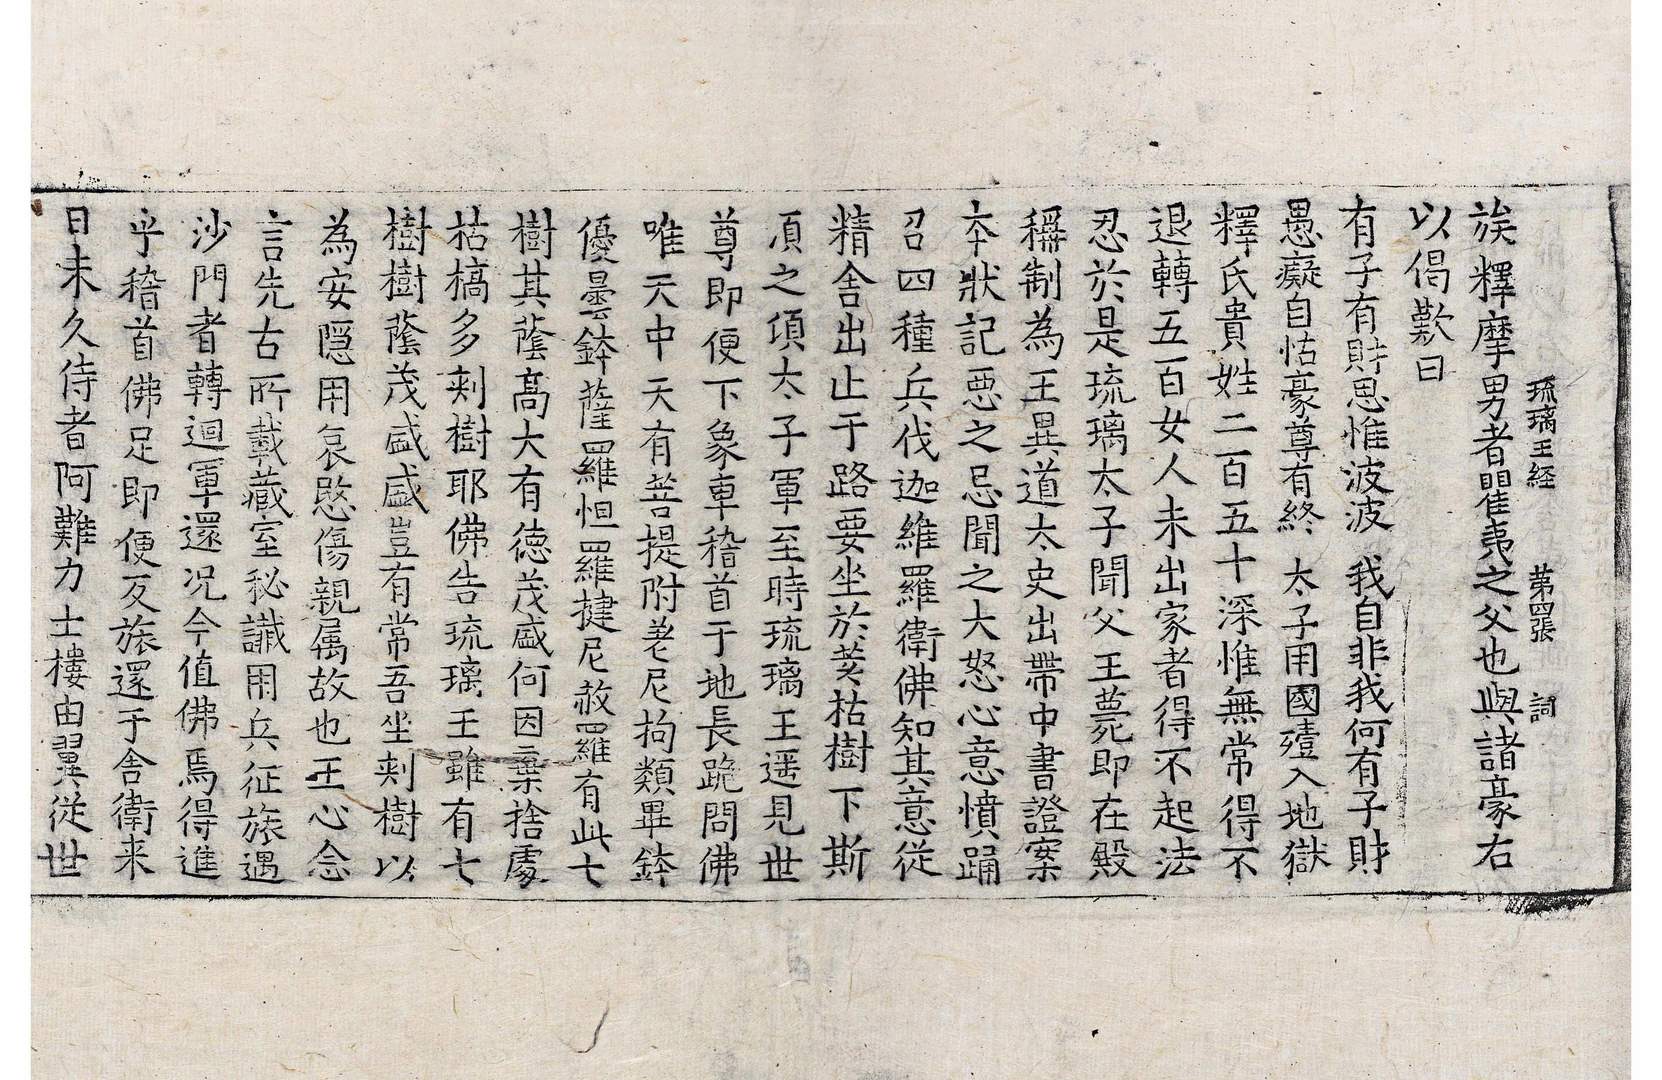 琉璃王経 第四張 詞
族釋摩男者瞿夷之父也與諸豪右
以偈歎曰
有子有財思惟波波 我自非我何有子財
愚癡自怙豪尊有終 太子用國殪入地獄
釋氏貴姓二百五十深惟無常得不
退轉五百女人未出家者得不起法
忍於是琉璃太子聞父王薨即在殿
稱制為王異道太史出帶中書證案
夲狀記惡之忌聞之大怒心意憤踊
召四種兵伐迦維羅衛佛知其意従
精舍出止于路要坐於荄枯樹下斯
湏之頃太子軍至時琉璃王遥見世
尊即便下象車稽首于地長跪問佛
唯天中天有菩提附荖尼拘類畢鉢
優曇鉢薩羅怛羅揵尼赦羅有此七
樹其蔭高大有德茂盛何因棄捨處
枯槁多刺樹耶佛告琉璃王雖有七
樹樹蔭茂盛盛豈有常吾坐刺樹以
為安隠用哀愍傷親属故也王心念
言先古所載藏室秘讖用兵征旅遇
沙門者轉迴軍還况今值佛焉得進
乎稽首佛足即便反旅還于舎衛来
日未久侍者阿難力士樓由翼従世